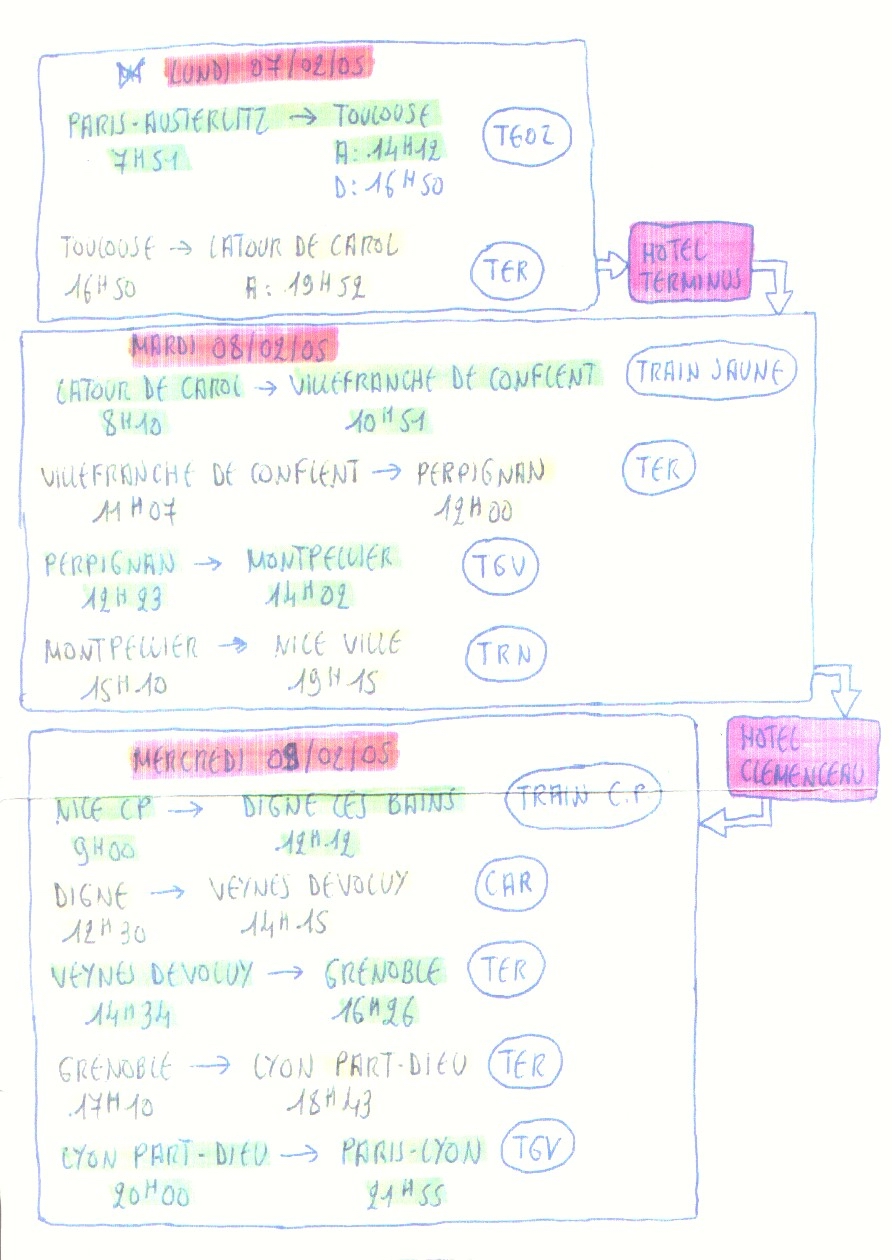 LUNDI 07/02/05
PARIS-AUSTERLITZ → TOULOUSE TEOZ
7H51 A: 14H12
D: 16H50
TOULOUSE → LATOUR DE CAROL TER
16H50 A: 19H52
HOTEL
TERMINUS
MARDI 08/02/05
LATOUR DE CAROL → VILLEFRANCHE DE CONFLENT TRAIN JAUNE
8H10 10H51
VILLEFRANCHE DE CONFLENT → PERPIGNAN TER
11H07 12H00
PERPIGNAN → MONTPELLIER TGV
12H23 14H02
MONTPELLIER → NICE VILLE TRN
15H10 19H15
HOTEL
CLEMENCEAU
MERCREDI 09/02/05
NICE CP → DIGNE LES BAINS TRAIN C.P.
9H00 12H12
DIGNE → VEYNES DEVOLUY CAR
12H30 14H15
VEYNES DEVOLUY → GRENOBLE TER
14H34 16H26
GRENOBLE → LYON PART-DIEU TER
17H10 18H43
LYON PART-DIEU → PARIS-LYON TGV
20H00 21H55